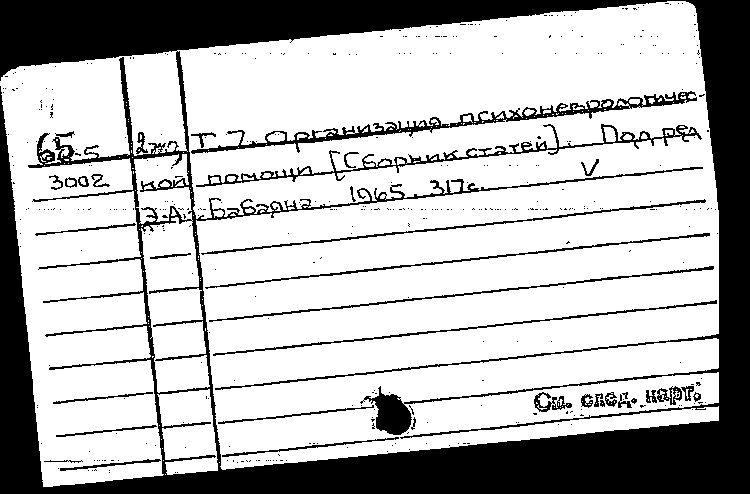 65-5 Т.7. Организация психоневрологичес-
3002 кой помощи [Сборник статей]. Под ред.
Э.А. Бабаяна. 1965. 317с. V
См. след. карт.